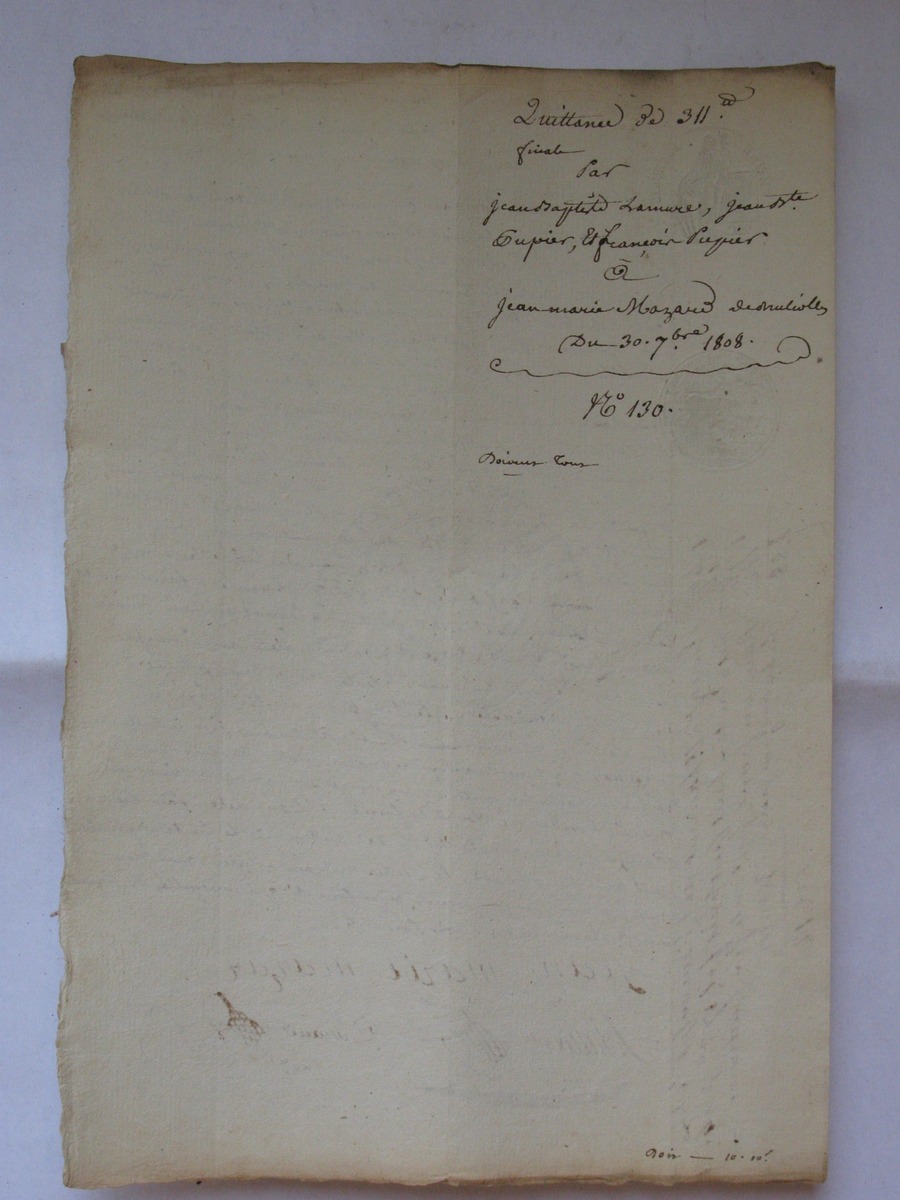 Quittance de 311.
finale
Par
jean Baptiste Lamure, jean Bte.
Pupier, Et françois Pupier
à
jean marie Mazard
Du 30. 7bre 1808.
No 130.
Doivent tout
Doit — 10.